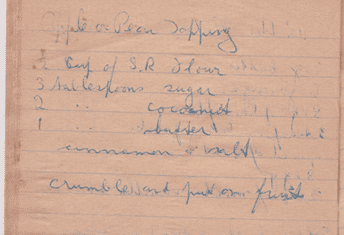 Apple or Pear Topping
Cup of S.R Flour
3 tablespoons sugar
2 .. cocoanut
1 .. butter
cinnamon & salt
crumble and put on fruit